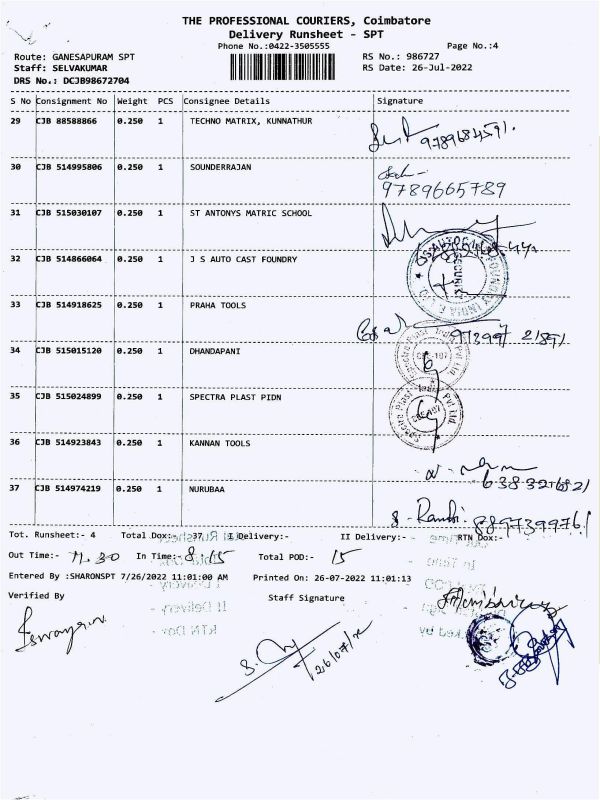 THE PROFESSIONAL COURIERS, Coimbatore
Delivery Runsheet - SPT
Phone No.:0422-3505555 Page No.:4
Route: GANESAPURAM SPT RS No.: 986727
Staff: SELVAKUMAR RS Date: 26-Jul-2022
DRS No.: DCJB98672704
S No Consignment No Weight PCS Consignee Details Signature
29 CJB 88588866 0.250 1 TECHNO MATRIX, KUNNATHUR
9789684591.
30 CJB 514995806 0.250 1 SOUNDERRAJAN
9789665789
31 CJB 515030107 0.250 1 ST ANTONYS MATRIC SCHOOL
32 CJB 514866064 0.250 1 J S AUTO CAST FOUNDRY
SECURITY
33 CJB 514918625 0.250 1 PRAHA TOOLS
973997 21891
34 CJB 515015120 0.250 1 DHANDAPANI
35 CJB 515024899 0.250 1 SPECTRA PLAST PIDN
Spectra Plast India Pvt Ltd.
36 CJB 514923843 0.250 1 KANNAN TOOLS
6383276821
37 CJB 514974219 0.250 1 NURUBAA
Tot. Runsheet:- 4 Total Dox:- 37 I Delivery:- II Delivery:- RTN Dox:-
Out Time:- 11.30 In Time:- 8.15 Total POD:- 15
Entered By :SHARONSPT 7/26/2022 11:01:00 AM Printed On: 26-07-2022 11:01:13
Verified By Staff Signature
26/07/22